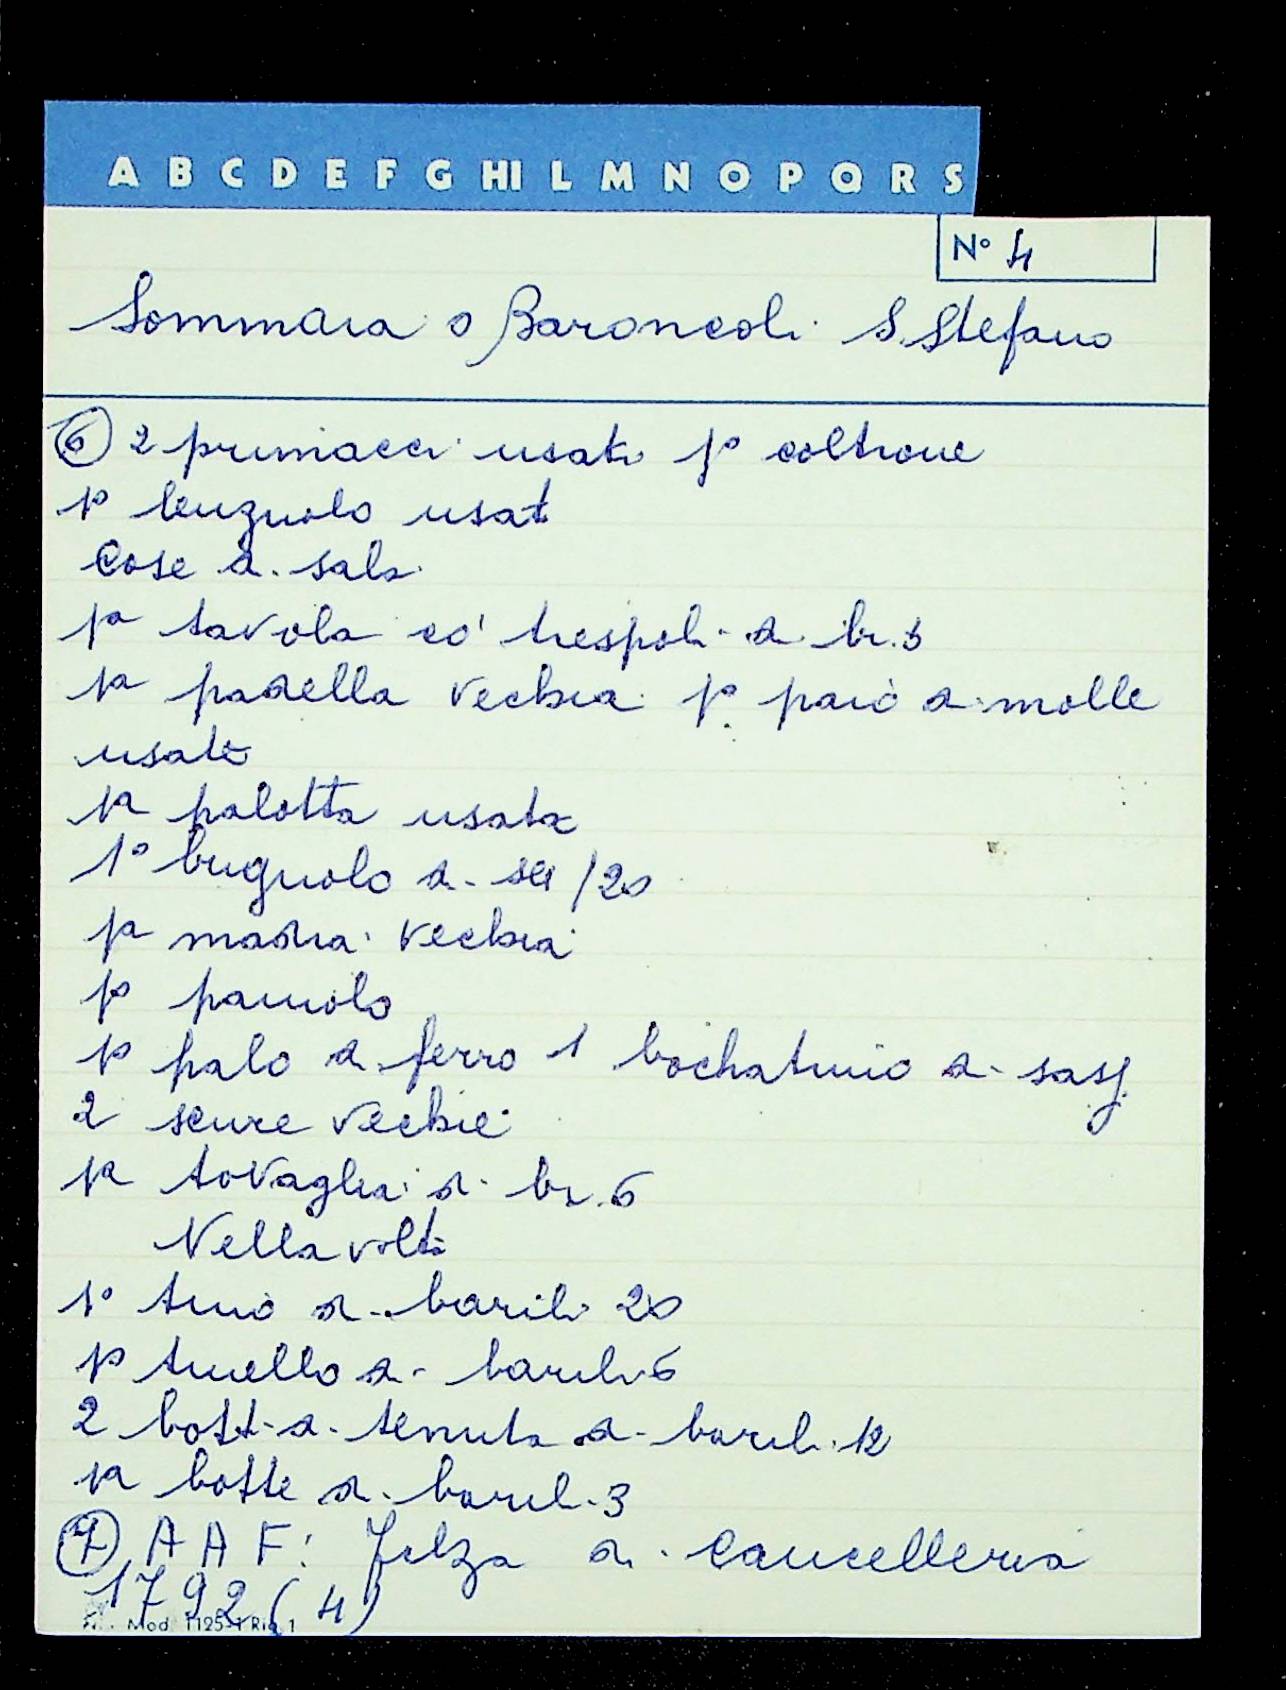 A B C D E F G HI L M N O P Q R S
N° 4
Sommaia o Baroncoli S. Stefano
⑥ 2 primacci usati 1° coltrone
1° lenzuolo usat
Cose di sala
1ª tavola co' trespoli di br. 3
1ª padella vechia 1° paio di molle
usate
1ª palotta usata
1° bugnolo di /20
1ª madia vechia
1° paiuolo
1° palo di ferro 1 di sassi
2 scure vechie
1ª tovaglia di br. 6
Nella volta
1° tino di barili 20
1° tinello di barili 6
2 botti di tenuta di barili 12
1ª botte di barili 3
⑦ A A F: Filza di Cancelleria
1792 (4)
Mod. 1125-1 Rig. 1